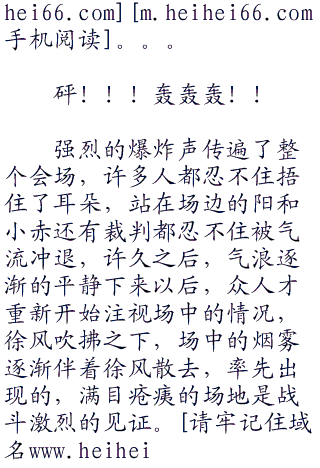 hei66.com][m.heihei66.com
手机阅读]。。。
砰！！！轰轰轰！！
强烈的爆炸声传遍了整
个会场，许多人都忍不住捂
住了耳朵，站在场边的阳和
小赤还有裁判都忍不住被气
流冲退，许久之后，气浪逐
渐的平静下来以后，众人才
重新开始注视场中的情况，
徐风吹拂之下，场中的烟雾
逐渐伴着徐风散去，率先出
现的，满目疮痍的场地是战
斗激烈的见证。[请牢记住域
名www.heihei